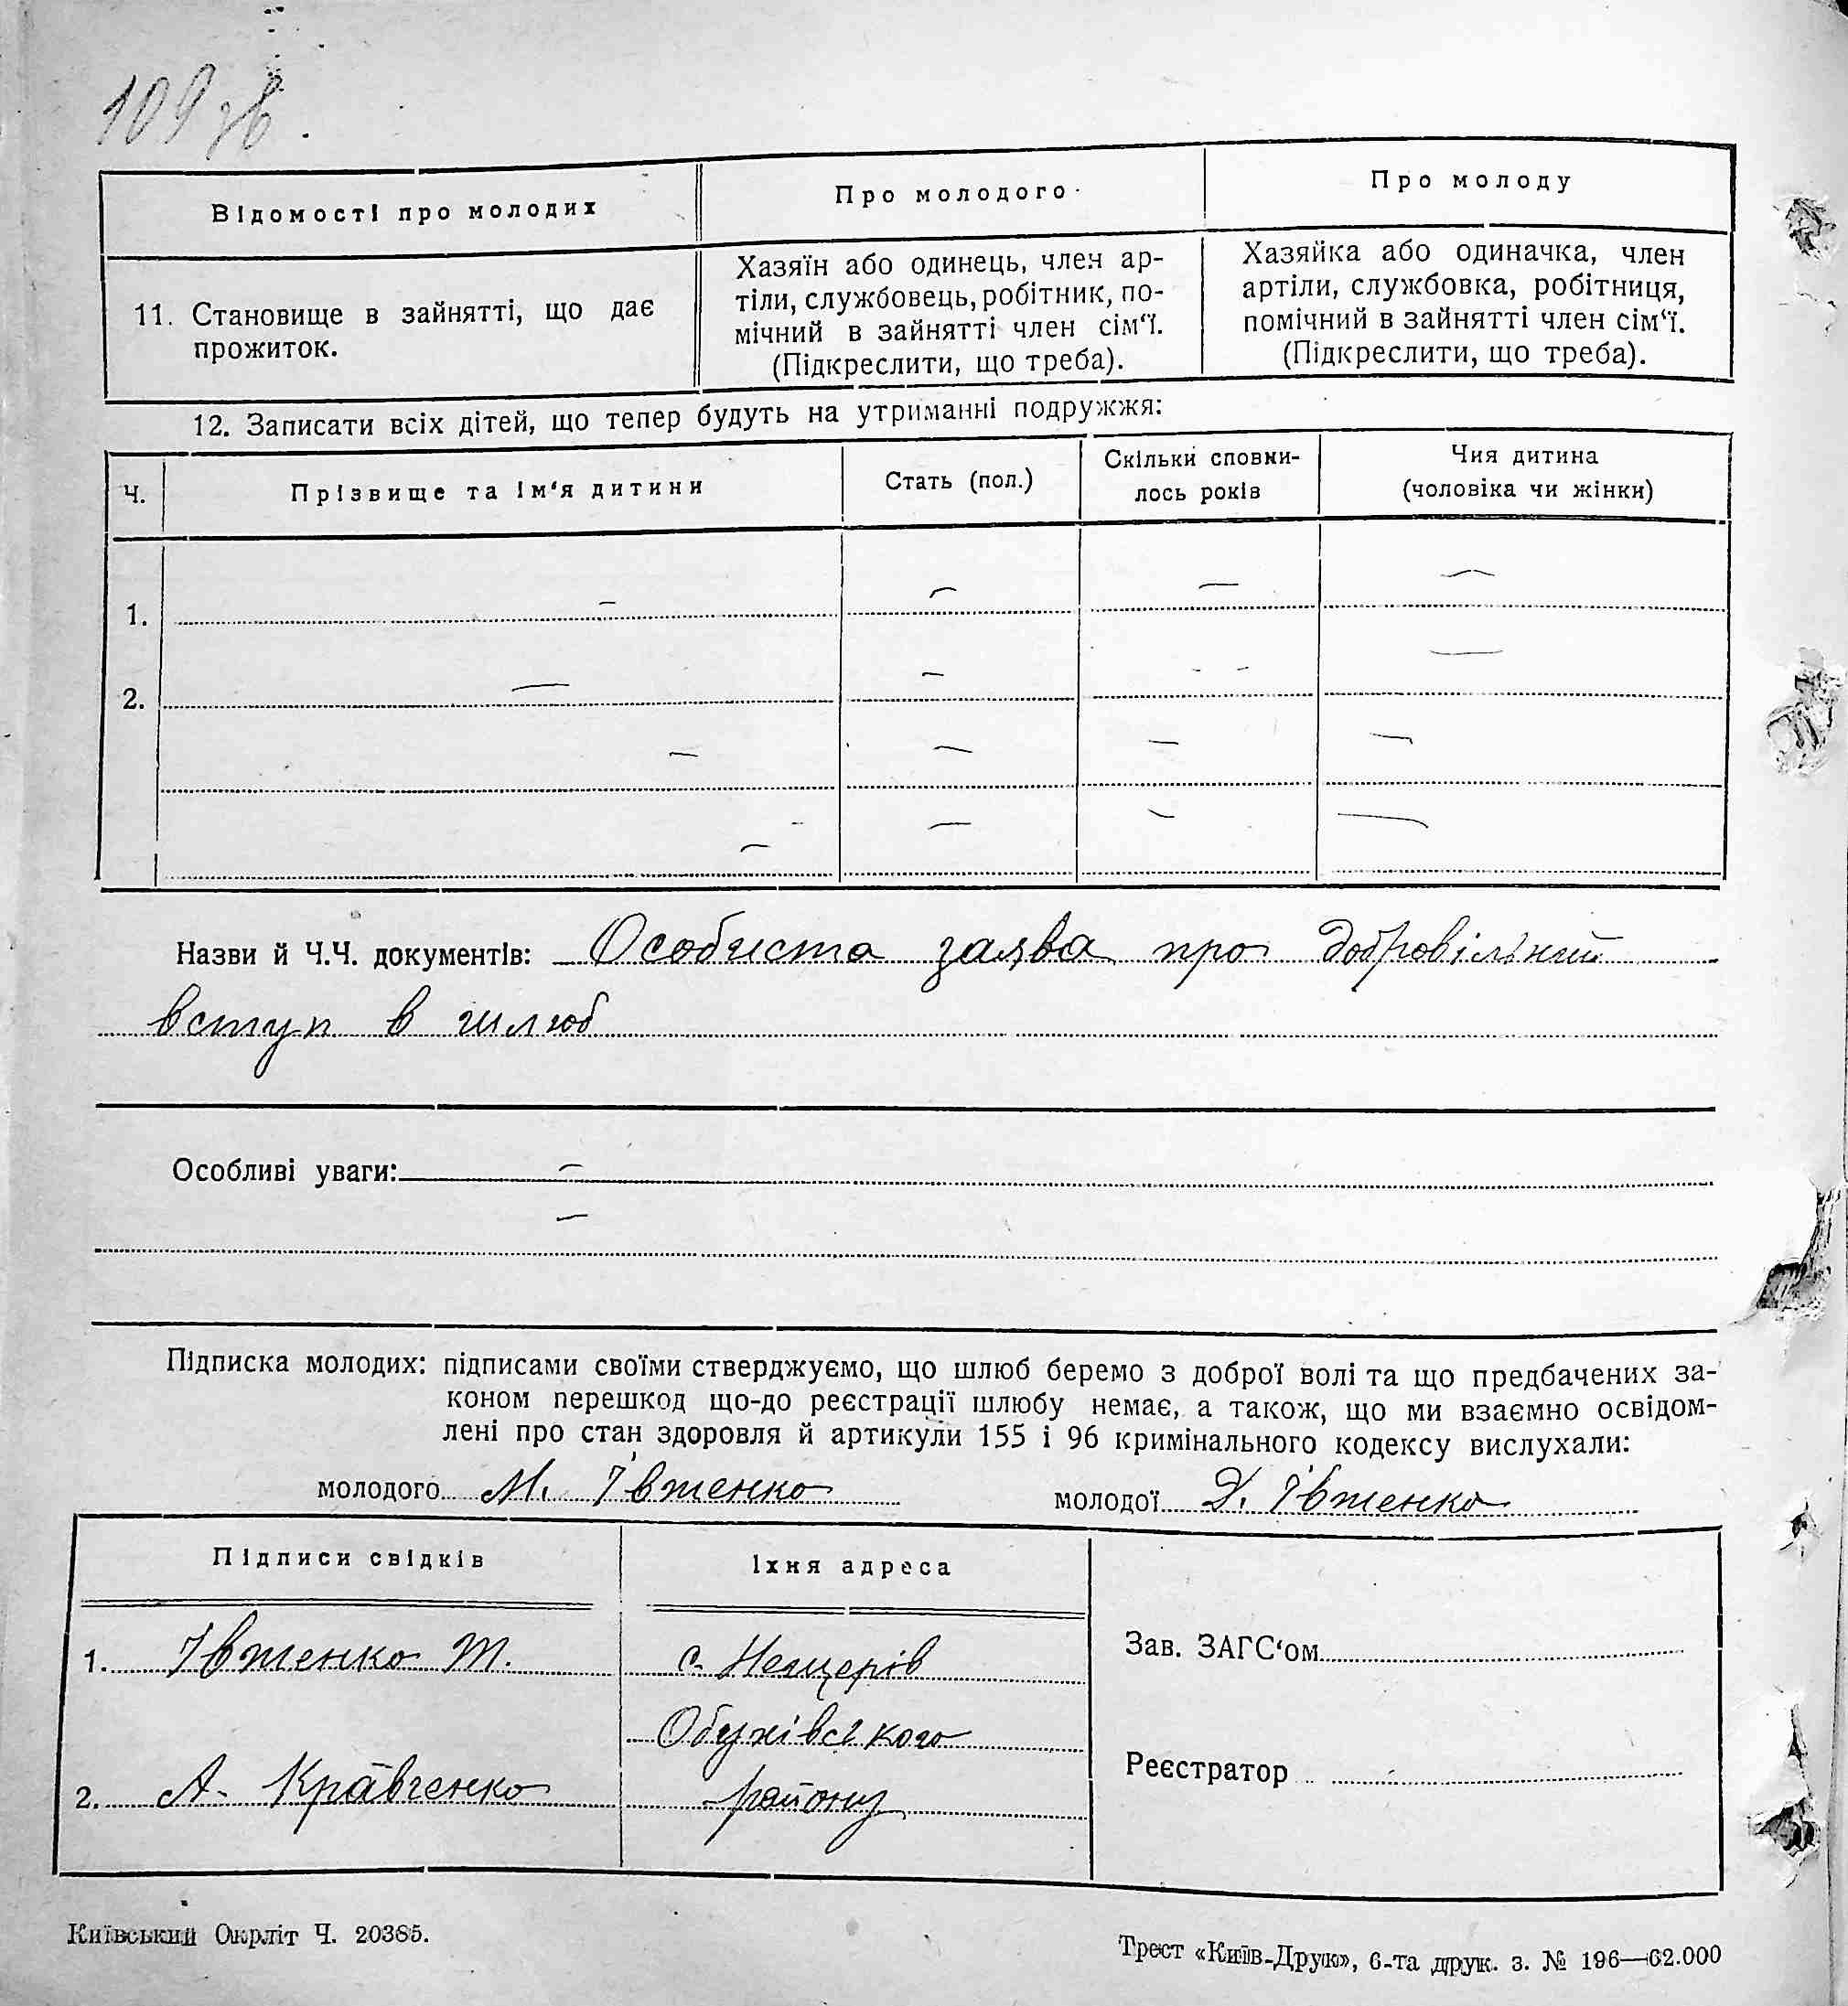 109 зв.
Відомості про молодих
Про молодого
Про молоду
11. Становище в зайнятті, що дає
прожиток.
Хазяїн або одинець, член ар-
тіли, службовець, робітник, по-
мічний в зайнятті член сім‘ї.
(Підкреслити, що треба).
Хазяйка або одиначка, член
артіли, службовка, робітниця,
помічний в зайнятті член сім‘ї.
(Підкреслити, що треба).
12. Записати всіх дітей, що тепер будуть на утриманні подружжя:
Ч.
Прізвище та ім‘я дитини
Стать (пол.)
Скільки сповни-
лось років
Чия дитина
(чоловіка чи жінки)
1. — — — —
2. — — — —
— — — —
— — — —
Назви й Ч.Ч. документів: Особиста заява про добровільний
вступ в шлюб
Особливі уваги: —
—
Підписка молодих: підписами своїми стверджуємо, що шлюб беремо з доброї волі та що предбачених за-
коном перешкод що-до реєстрації шлюбу немає, а також, що ми взаємно освідом-
лені про стан здоровля й артикули 155 і 96 кримінального кодексу вислухали:
молодого М. Івженко молодої Д. Івженко
Підписи свідків
Їхня адреса
1. Івженко Т.
с. Нещерів
Зав. ЗАГС‘ом
Обухівського
2. А. Кравченко
району
Реєстратор
Київський Окрліт Ч. 20385.
Трест «Київ-Друк», 6-та друк. з. № 196—62.000